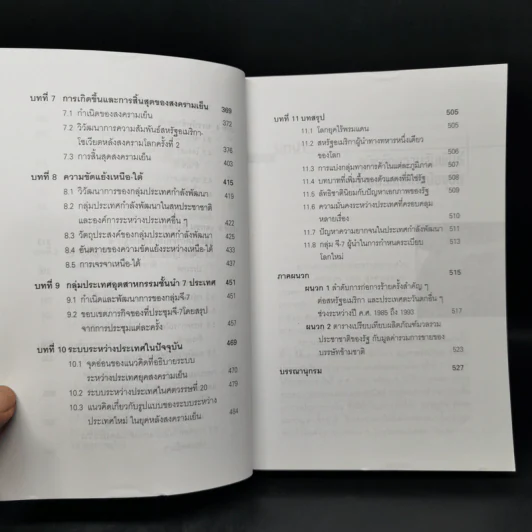 บทที่ 7 การเกิดขึ้นและการสิ้นสุดของสงครามเย็น 369
7.1 กำเนิดของสงครามเย็น 372
7.2 วิวัฒนาการความสัมพันธ์สหรัฐอเมริกา-
โซเวียตหลังสงครามโลกครั้งที่ 2 376
7.3 การสิ้นสุดสงครามเย็น 403
บทที่ 8 ความขัดแย้งเหนือ-ใต้ 415
8.1 วิวัฒนาการของกลุ่มประเทศกำลังพัฒนา 419
8.2 กลุ่มประเทศกำลังพัฒนาในสหประชาชาติ
และองค์การระหว่างประเทศอื่น ๆ 422
8.3 วัตถุประสงค์ของกลุ่มประเทศกำลังพัฒนา 427
8.4 อันตรายของความขัดแย้งระหว่างเหนือ-ใต้ 433
8.5 การเจรจาเหนือ-ใต้ 437
บทที่ 9 กลุ่มประเทศอุตสาหกรรมชั้นนำ 7 ประเทศ 451
9.1 กำเนิดและพัฒนาการของกลุ่มจี-7 451
9.2 ขอบเขตภารกิจของที่ประชุมจี-7โดยสรุป
จากการประชุมแต่ละครั้ง 457
บทที่ 10 ระบบระหว่างประเทศในปัจจุบัน 469
10.1 จุดอ่อนของแนวคิดที่อธิบายระบบ
ระหว่างประเทศยุคสงครามเย็น 470
10.2 ระบบระหว่างประเทศในศตวรรษที่ 20 479
10.3 แนวคิดเกี่ยวกับรูปแบบของระบบระหว่าง
ประเทศใหม่ ในยุคหลังสงครามเย็น 484
บทที่ 11 บทสรุป 505
11.1 โลกยุคไร้พรมแดน 505
11.2 สหรัฐอเมริกาผู้นำทางทหารหนึ่งเดียว
ของโลก 506
11.3 การแบ่งกลุ่มทางการค้าในแต่ละภูมิภาค 507
11.4 บทบาทที่เพิ่มขึ้นของตัวแสดงที่มิใช่รัฐ 508
11.5 ลัทธิชาตินิยมกับปัญหาเอกภาพของรัฐ 509
11.6 ความมั่นคงระหว่างประเทศที่ครอบคลุม
หลายเรื่อง 510
11.7 ปัญหาความยากจนในประเทศกำลังพัฒนา 511
11.8 กลุ่ม จี-7 ผู้นำในการกำหนดระเบียบ
โลกใหม่ 512
ภาคผนวก 515
ผนวก 1 ลำดับการก่อการร้ายครั้งสำคัญ ๆ
ต่อสหรัฐอเมริกา และประเทศตะวันตกอื่น ๆ
ช่วงระหว่างปี ค.ศ. 1985 ถึง 1990 517
ผนวก 2 ตารางเปรียบเทียบผลิตภัณฑ์มวลรวม
ประชาชาติของรัฐ กับมูลค่ารวมการขายของ
บรรษัทข้ามชาติ 523
บรรณานุกรม 527